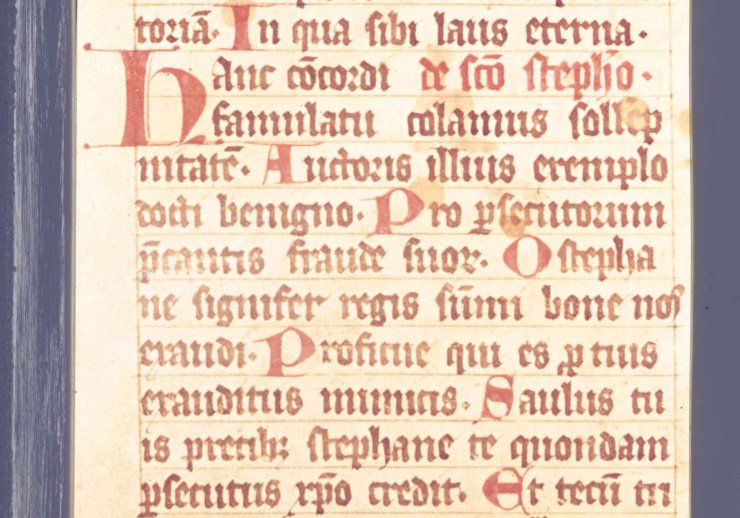 toriā. In qua sibi laus eterna.
Hanc cōcordi de scō steph̄o.
famulatu colamus sollep
nitatē. Auctoris illius exemplo
docti benigno. Pro ꝑsecutorum
p̄cantis fraude suoꝝ. O stepha
ne signifer regis sūmi bone nos
exaudi. Proficue qui es ꝓ tuis
exauditus inimicis. Paulus tu
is precibꝫ stephane te quondam
ꝑsecutus xp̄o credit. Et tecū tri